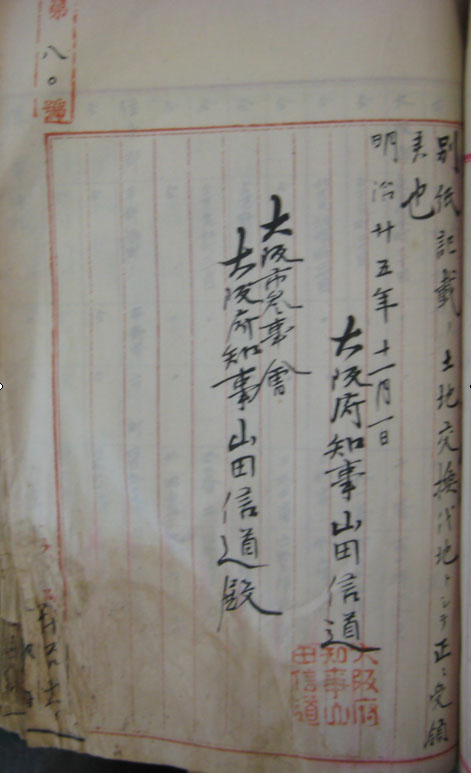 別紙記載ノ土地交換代地トシテ正ニ受領
美也
明治廿五年十一月一日
大阪府知事山田信道
大阪府知事山田信道
大阪市参事會
大阪府知事山田信道殿
第八〇號